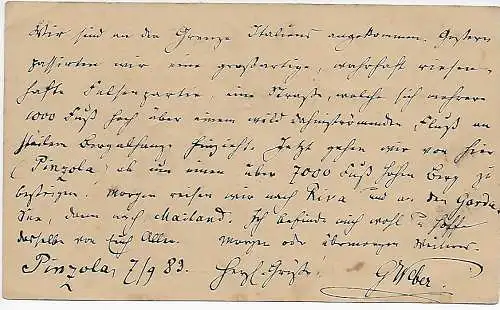 Wir sind an die Grenze Italiens angekommen. Gestern
passirten wir eine großartige, wahrhaft riesen-
hafte Felsenpartie, eine Straße, welche sich mehrere
1000 Fuß hoch über einem wild dahinströmenden Fluß an
steilem Bergabhange hinzieht. Jetzt gehen wir von hier
(Pinzola) ab um einen über 7000 Fuß hohen Berg zu
besteigen. Morgen reisen wir nach Riva und an den Garda
See, dann nach Mailand. Ich befinde mich wohl u. hoffe
dasselbe von Euch Allen. Morgen oder übermorgen Weiteres.
Pinzola, 7/9 83. Herzl. Grüße! G Weber.